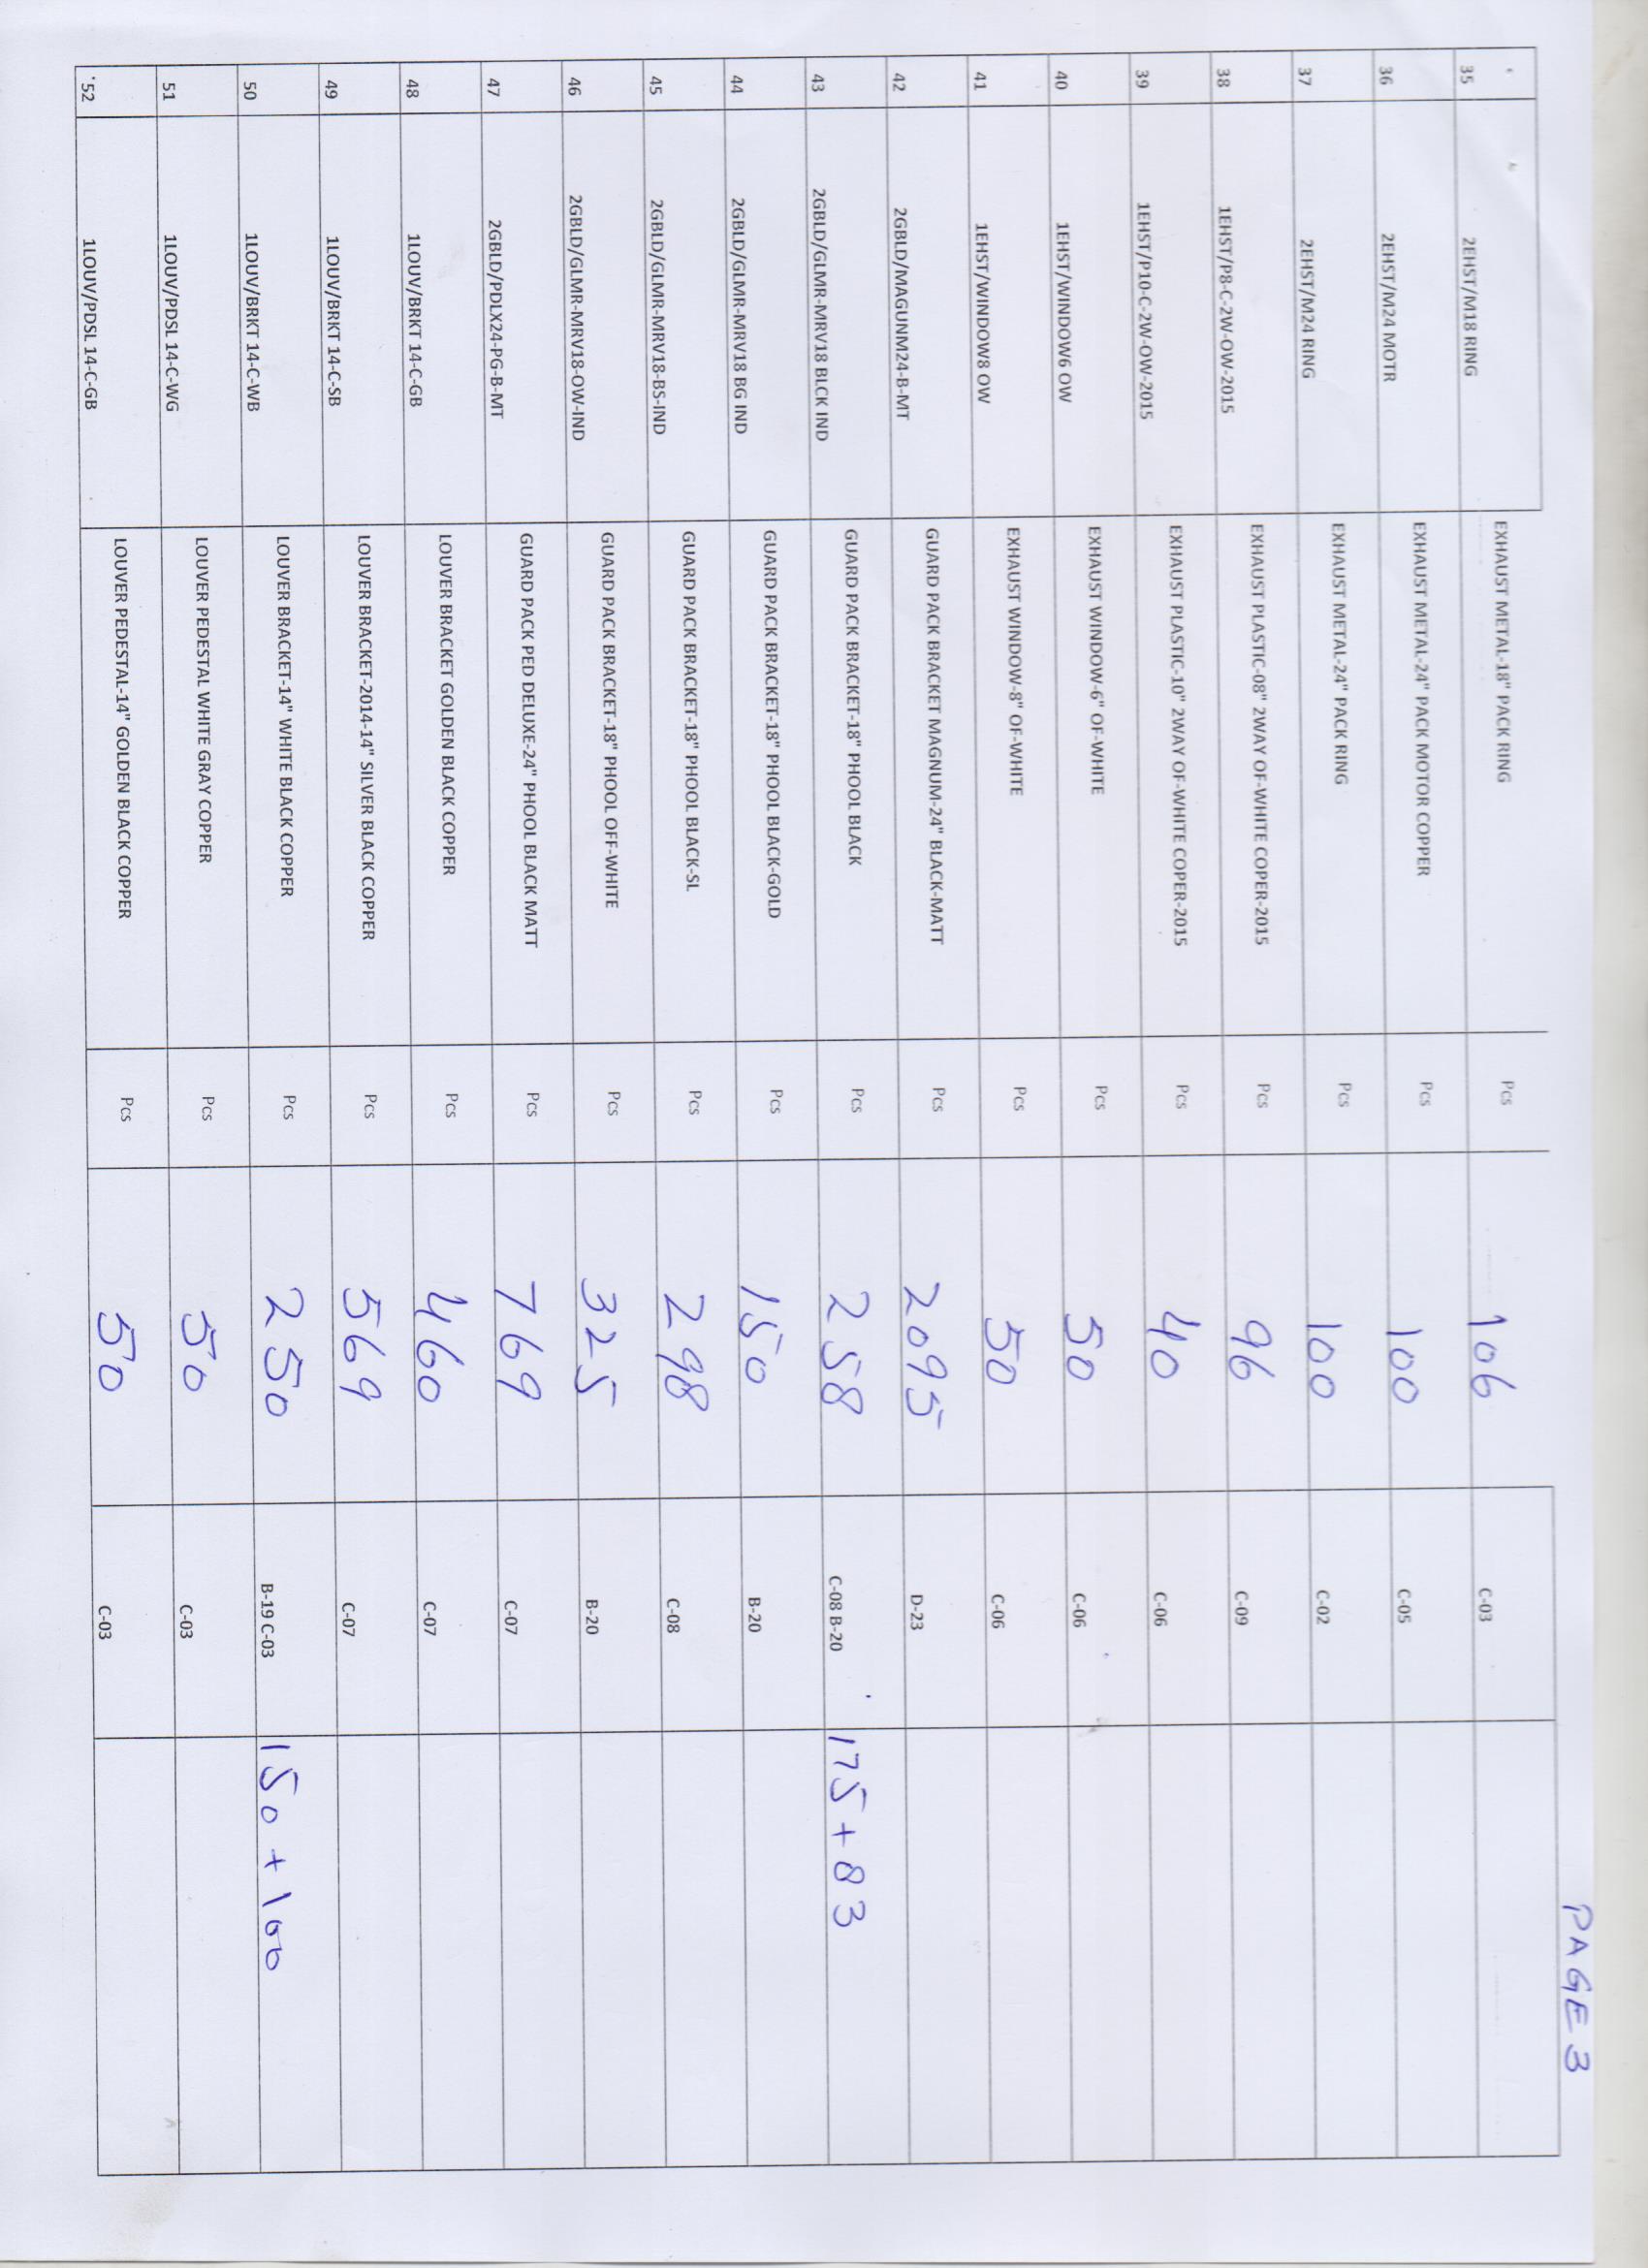 PAGE 3
35 2EHST/M18 RING EXHAUST METAL-18" PACK RING Pcs 106 C-03
36 2EHST/M24 MOTR EXHAUST METAL-24" PACK MOTOR COPPER Pcs 100 C-05
37 2EHST/M24 RING EXHAUST METAL-24" PACK RING Pcs 100 C-02
38 1EHST/P8-C-2W-OW-2015 EXHAUST PLASTIC-08" 2WAY OF-WHITE COPER-2015 Pcs 96 C-09
39 1EHST/P10-C-2W-OW-2015 EXHAUST PLASTIC-10" 2WAY OF-WHITE COPER-2015 Pcs 40 C-06
40 1EHST/WINDOW6 OW EXHAUST WINDOW-6" OF-WHITE Pcs 50 C-06
41 1EHST/WINDOW8 OW EXHAUST WINDOW-8" OF-WHITE Pcs 50 C-06
42 2GBLD/MAGUNM24-B-MT GUARD PACK BRACKET MAGNUM-24" BLACK-MATT Pcs 2095 D-23
43 2GBLD/GLMR-MRV18 BLCK IND GUARD PACK BRACKET-18" PHOOL BLACK Pcs 258 C-08 B-20 175+83
44 2GBLD/GLMR-MRV18 BG IND GUARD PACK BRACKET-18" PHOOL BLACK-GOLD Pcs 150 B-20
45 2GBLD/GLMR-MRV18-BS-IND GUARD PACK BRACKET-18" PHOOL BLACK-SL Pcs 298 C-08
46 2GBLD/GLMR-MRV18-OW-IND GUARD PACK BRACKET-18" PHOOL OFF-WHITE Pcs 325 B-20
47 2GBLD/PDLX24-PG-B-MT GUARD PACK PED DELUXE-24" PHOOL BLACK MATT Pcs 769 C-07
48 1LOUV/BRKT 14-C-GB LOUVER BRACKET GOLDEN BLACK COPPER Pcs 460 C-07
49 1LOUV/BRKT 14-C-SB LOUVER BRACKET-2014-14" SILVER BLACK COPPER Pcs 569 C-07
50 1LOUV/BRKT 14-C-WB LOUVER BRACKET-14" WHITE BLACK COPPER Pcs 250 B-19 C-03 150 + 100
51 1LOUV/PDSL 14-C-WG LOUVER PEDESTAL WHITE GRAY COPPER Pcs 50 C-03
52 1LOUV/PDSL 14-C-GB LOUVER PEDESTAL-14" GOLDEN BLACK COPPER Pcs 50 C-03